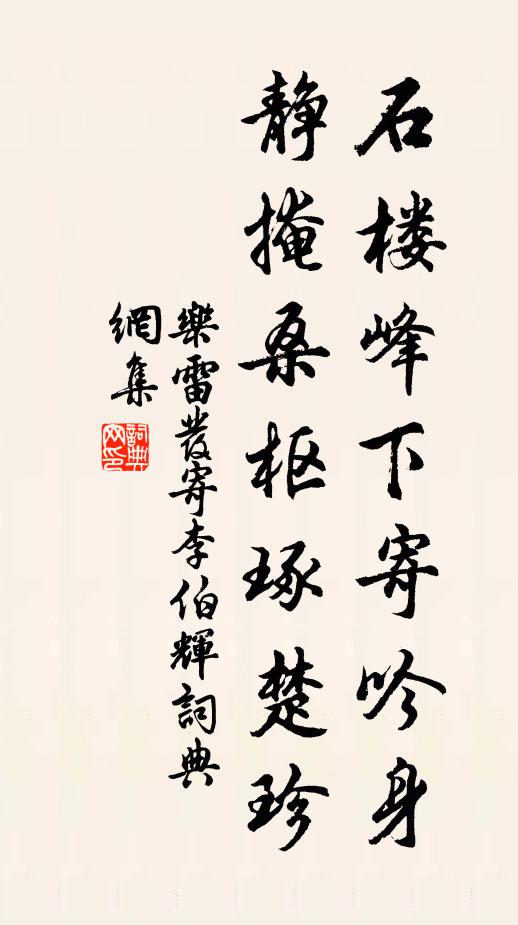 石楼峰下寄吟身
静掩桑枢琢楚珍
樂雷發寄李伯輝詞典
網集
詞典
网印